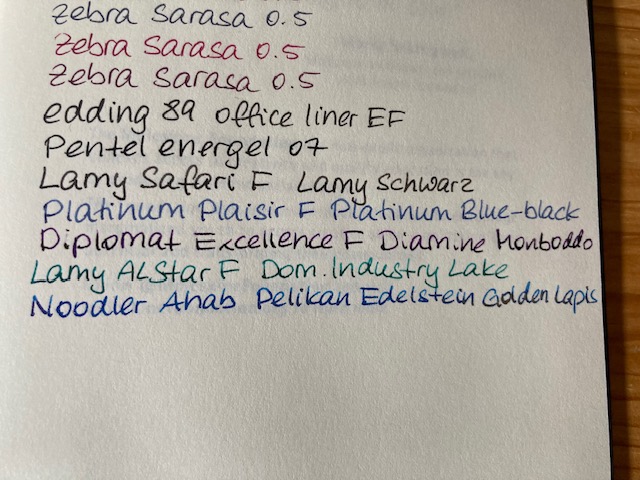 Zebra Sarasa 0.5
Zebra Sarasa 0.5
Zebra Sarasa 0.5
edding 89 office liner EF
Pentel energel 07
Lamy Safari F Lamy Schwarz
Platinum Plaisir F Platinum Blue-black
Diplomat Excellence F Diamine Monboddo
Lamy ALStar F Dom. Industry Lake
Noodler Ahab Pelikan Edelstein Golden Lapis